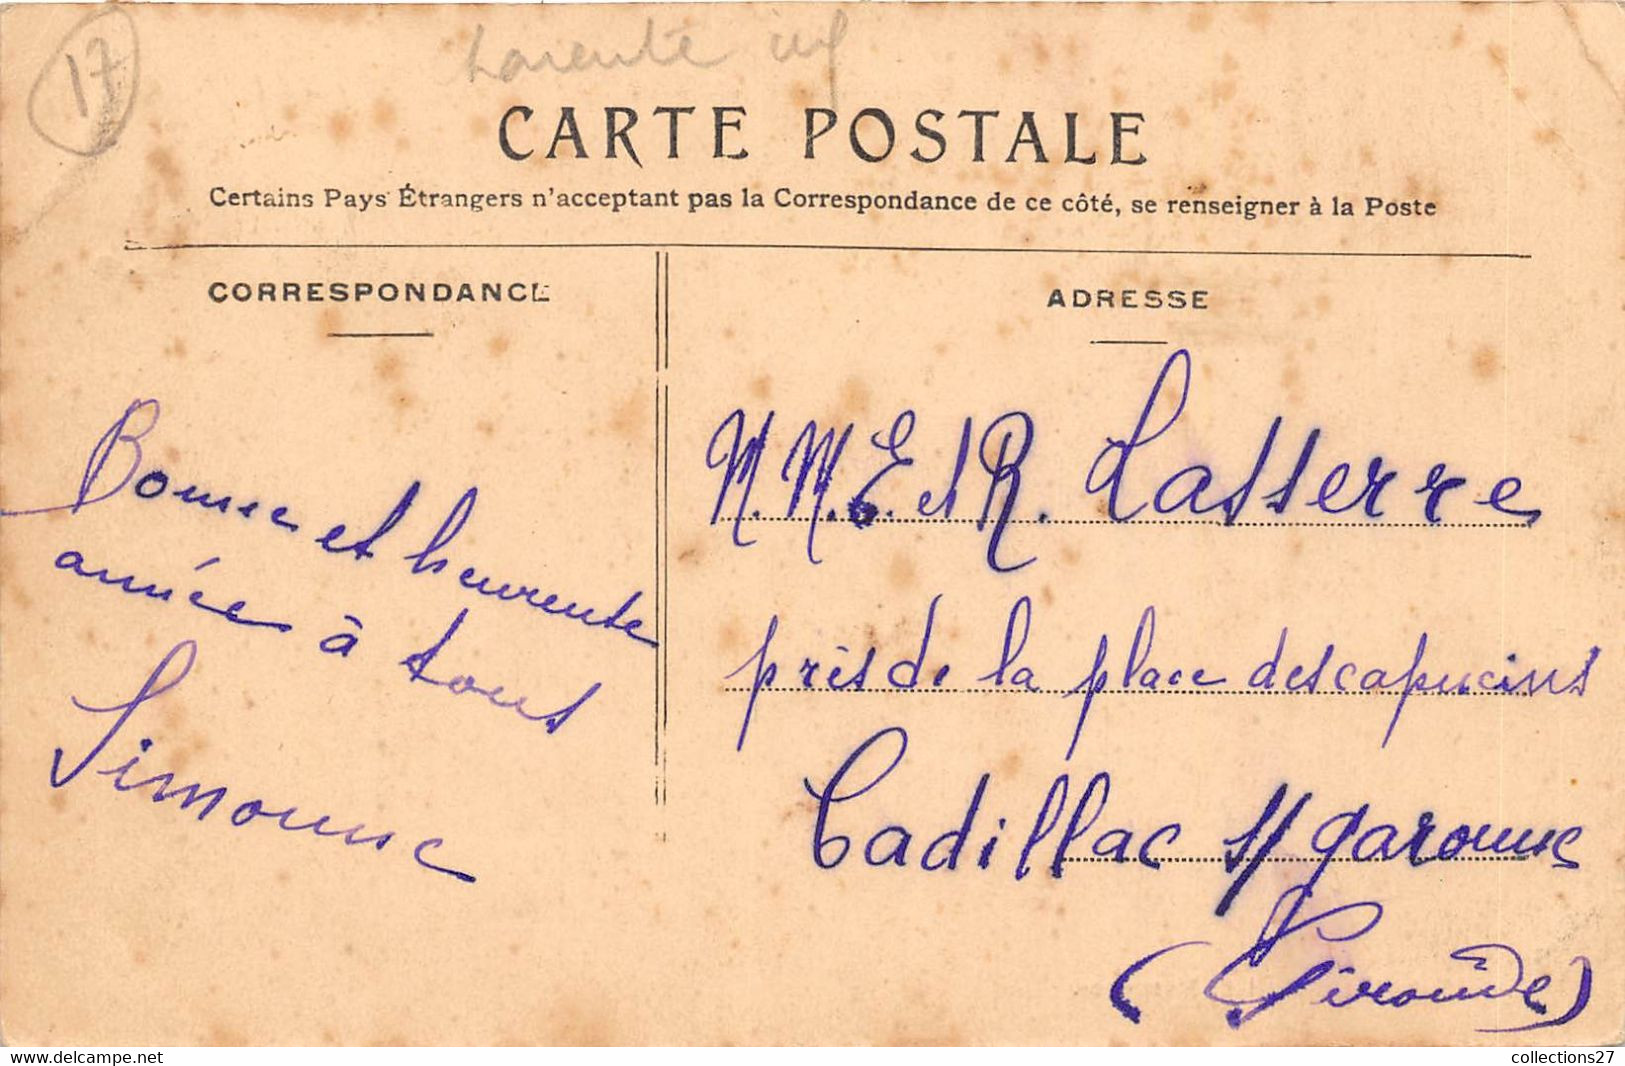 17
Charente inf
CARTE POSTALE
Certains Pays Étrangers n'acceptant pas la Correspondance de ce côté, se renseigner à la Poste
CORRESPONDANCE
Bonne et heureuse
année à tous
Simonne
ADRESSE
M. M. E. et R. Lasserre
près de la place des capucins
Cadillac s/ garonne
(Gironde)
collections27